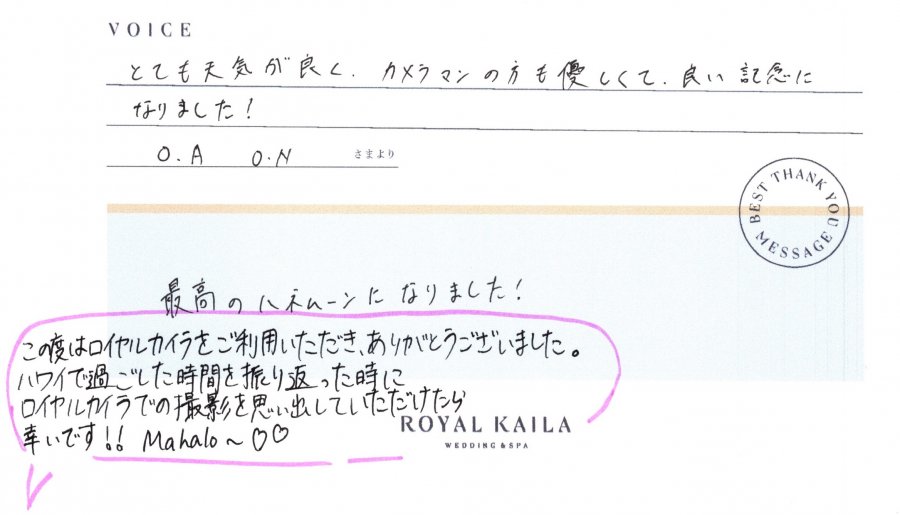 VOICE
とても天気が良く、カメラマンの方も優しくて、良い記念に
なりました!
O.A O.N さまより
BEST THANK YOU
MESSAGE
最高のハネムーンになりました!
この度はロイヤルカイラをご利用いただき、ありがとうございました。
ハワイで過ごした時間を振り返った時に
ロイヤルカイラでの撮影を思い出していただけたら
幸いです!! Mahalo~♡♡
ROYAL KAILA
WEDDING & SPA